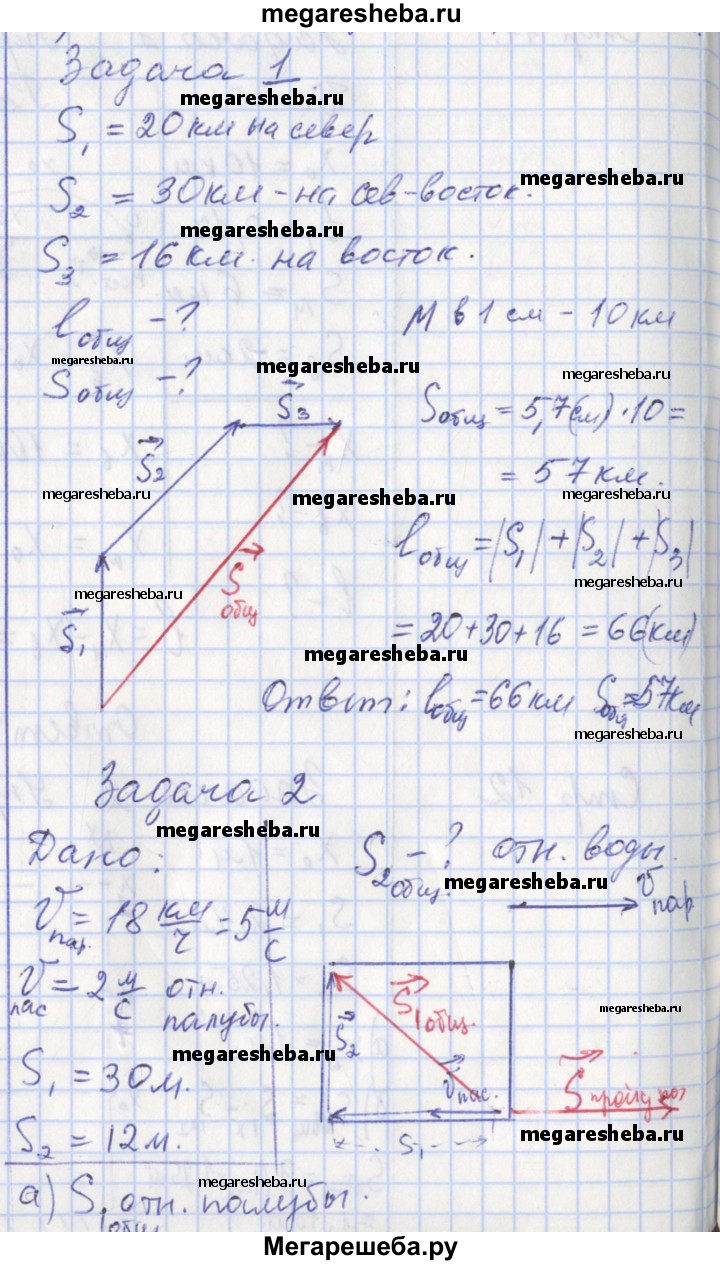 megaresheba.ru
Задача 1
megaresheba.ru
S₁ = 20 км на север
megaresheba.ru
S₂ = 30 км - на сев-восток.
S₃ = 16 км. на восток.
lобщ - ?
М в 1 см - 10 км
megaresheba.ru
megaresheba.ru
megaresheba.ru
Sобщ - ?
S₃
Sобщ = 5,7(см)·10=
S₂
= 57 км.
megaresheba.ru
megaresheba.ru
megaresheba.ru
lобщ = |S₁| + |S₂| + |S₃|
megaresheba.ru
megaresheba.ru
Sобщ
S₁
= 20+30+16 = 66(км)
megaresheba.ru
Ответ: lобщ = 66 км Sобщ = 57 км
megaresheba.ru
Задача 2
megaresheba.ru
Дано:
S₂общ. - ? отн. воды.
megaresheba.ru
Vпар
Vпар. = 18 км/ч = 5 м/с
megaresheba.ru
Vпас = 2 м/с отн. палубы.
S₁общ.
megaresheba.ru
S₂
megaresheba.ru
S₁ = 30 м.
Vпас.
S₂ = 12 м.
S₁
megaresheba.ru
megaresheba.ru
а) S₁общ отн. палубы.
Мегарешеба.ру